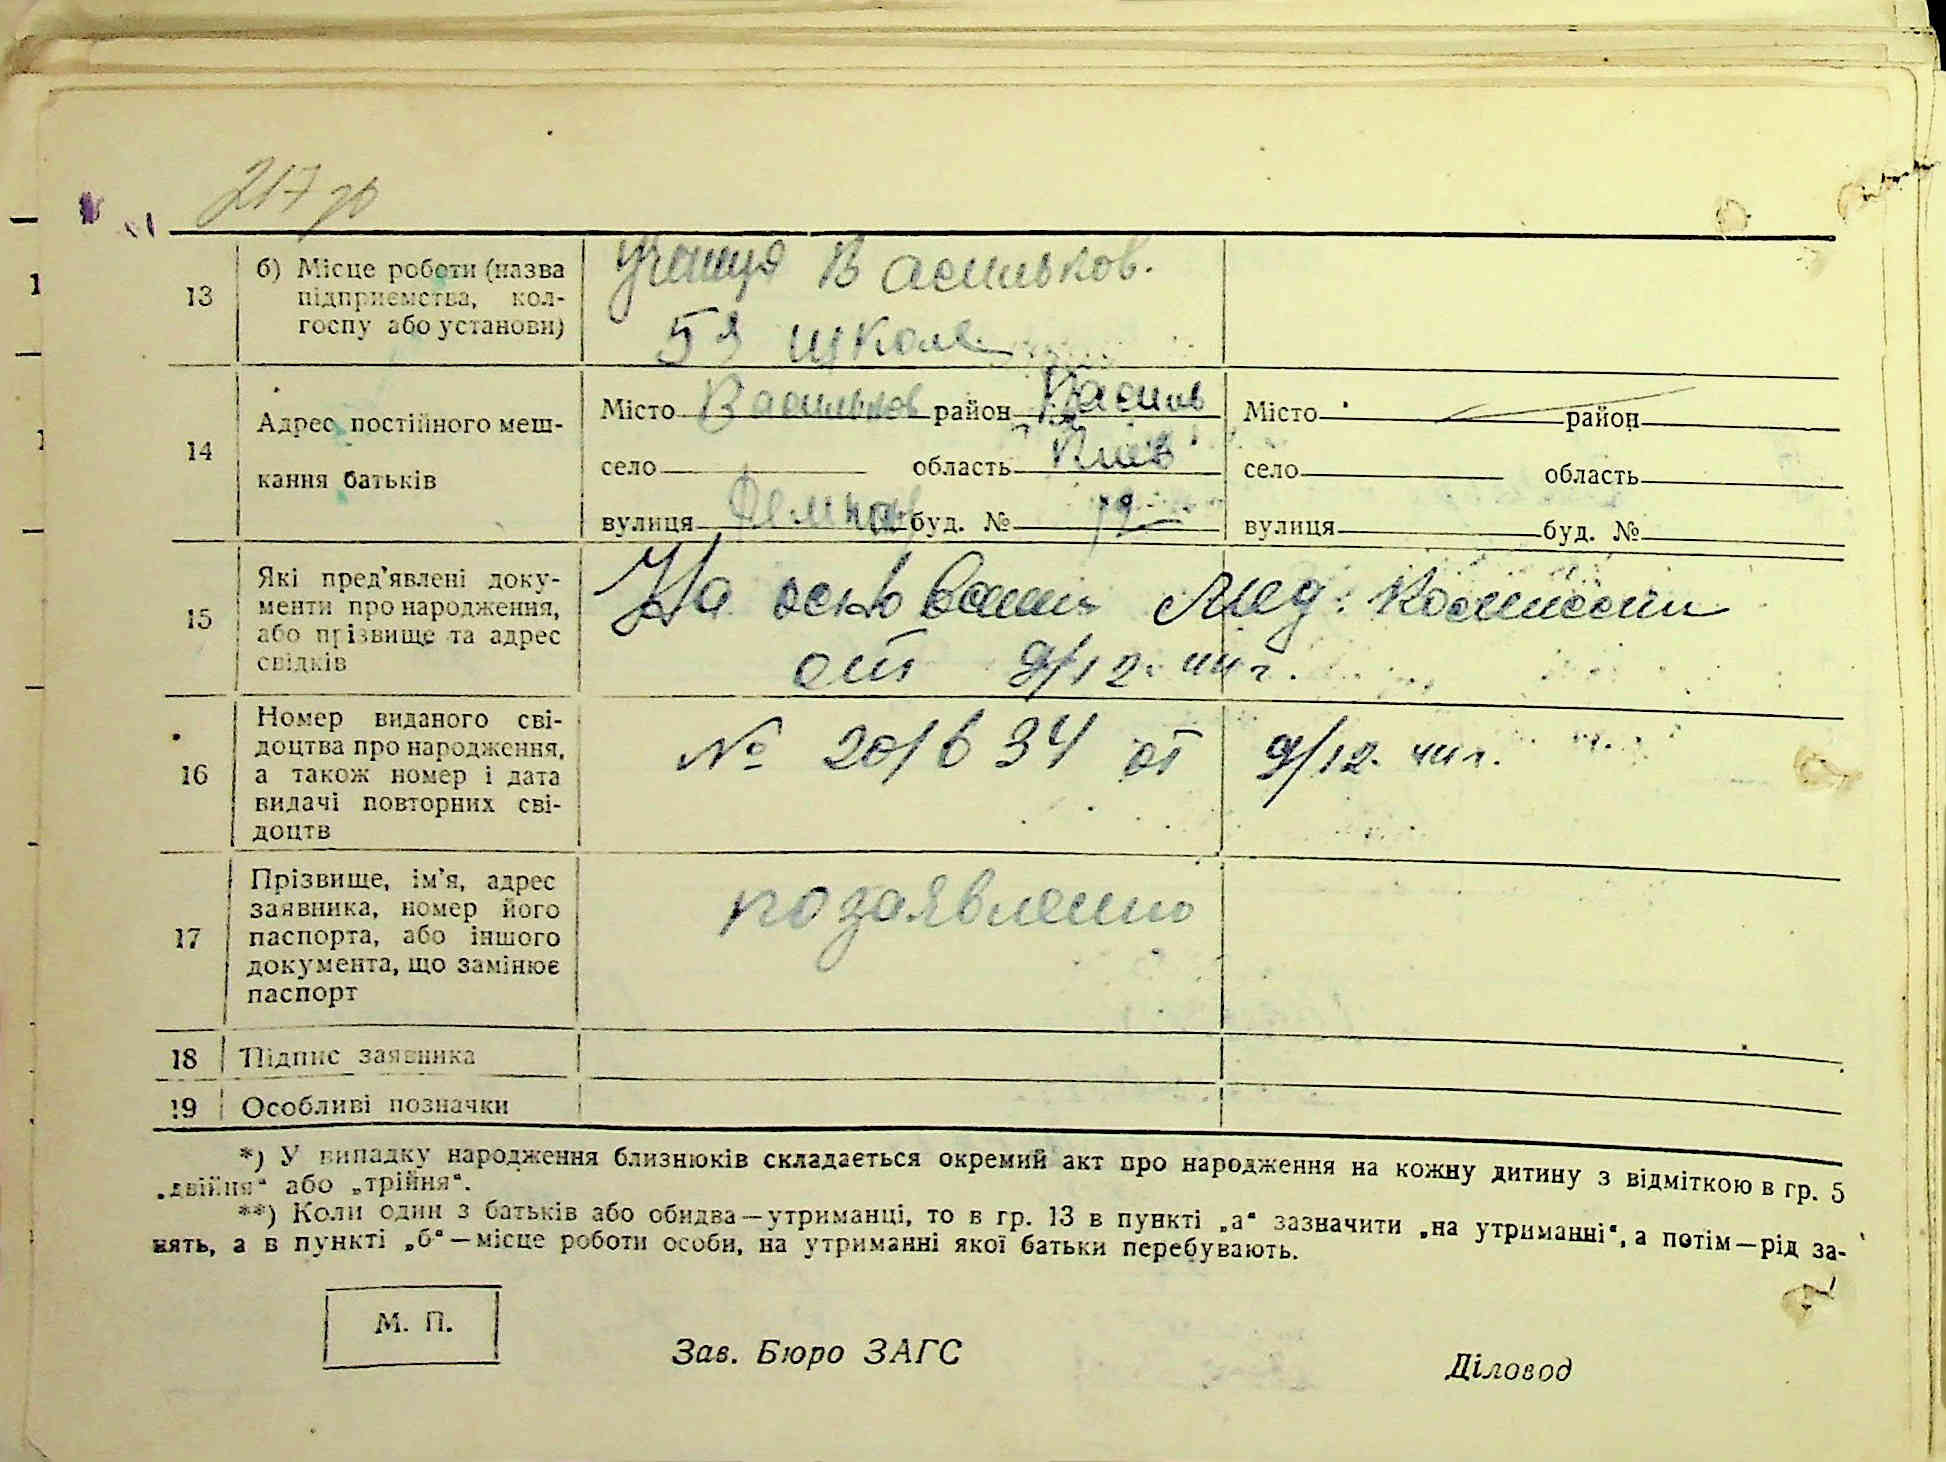 217 зв
13 б) Місце роботи (назва підприємства, колгоспу або установи)
Учащуя Васильков.
5я школа
14 Адрес постійного мешкання батьків
Місто Васильков район Васильк
село область Киев
вулиця буд. № 19
Місто район
село область
вулиця буд. №
15 Які пред'явлені документи про народження, або прізвище та адрес свідків
На основании мед. комиссии
от 9/12. 44 г.
16 Номер виданого свідоцтва про народження, а також номер і дата видачі повторних свідоцтв
№ 201634 от 9/12. 44 г.
17 Прізвище, ім'я, адрес заявника, номер його паспорта, або іншого документа, що замінює паспорт
по заявлению
18 Підпис заявника
19 Особливі позначки
*) У випадку народження близнюків складається окремий акт про народження на кожну дитину з відміткою в гр. 5
„двійня“ або „трійня“.
**) Коли один з батьків або обидва—утриманці, то в гр. 13 в пункті „а“ зазначити „на утриманні“, а потім—рід за-
нять, а в пункті „б“—місце роботи особи, на утриманні якої батьки перебувають.
М. П.
Зав. Бюро ЗАГС
Діловод